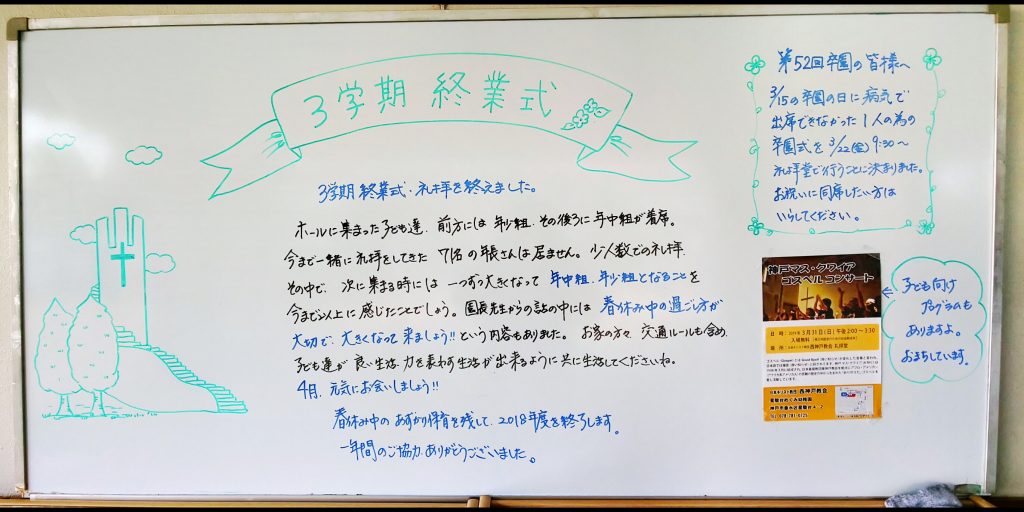 3学期 終業式
3学期 終業式・礼拝を終えました。
ホールに集まった子ども達、前方には 年少組、その後ろに 年中組が着席。
今まで一緒に礼拝をしてきた 7名の年長さんは居ません。少人数での礼拝、
その中で、次に集まる時には 一つずつ大きくなって 年中組、年少組となることを
今まで以上に感じたことでしょう。園長先生からの話の中には 春休み中の過ごし方が
大切で、大きくなって 来ましょう!! という内容もありました。お家の方々、交通ルールも含め、
子ども達が 良い生活、力を表わす生活が出来るように 共に生活してくださいね。
4月、元気にお会いしましょう!!
春休み中の あずかり保育を残して、2018年度を終了します。
一年間のご協力、ありがとうございました。
第52回卒園の皆様へ
3/15の卒園の日に 病気で
出席できなかった 1人の為の
卒園式を 3/22(金) 9:30~
礼拝堂で行うことに決まりました。
お祝いに同席したい方は
いらしてください。
神戸マス・クワイア
ゴスペル コンサート
日時:2019年3月31日(日)午後2:00~3:30
入場無料
場所:西神戸教会 礼拝堂
日本キリスト教団 西神戸教会
愛垂幼めぐみ幼稚園
TEL 078-781-0725
← 子ども向け
プログラムも
ありますよ。
おまちしています。